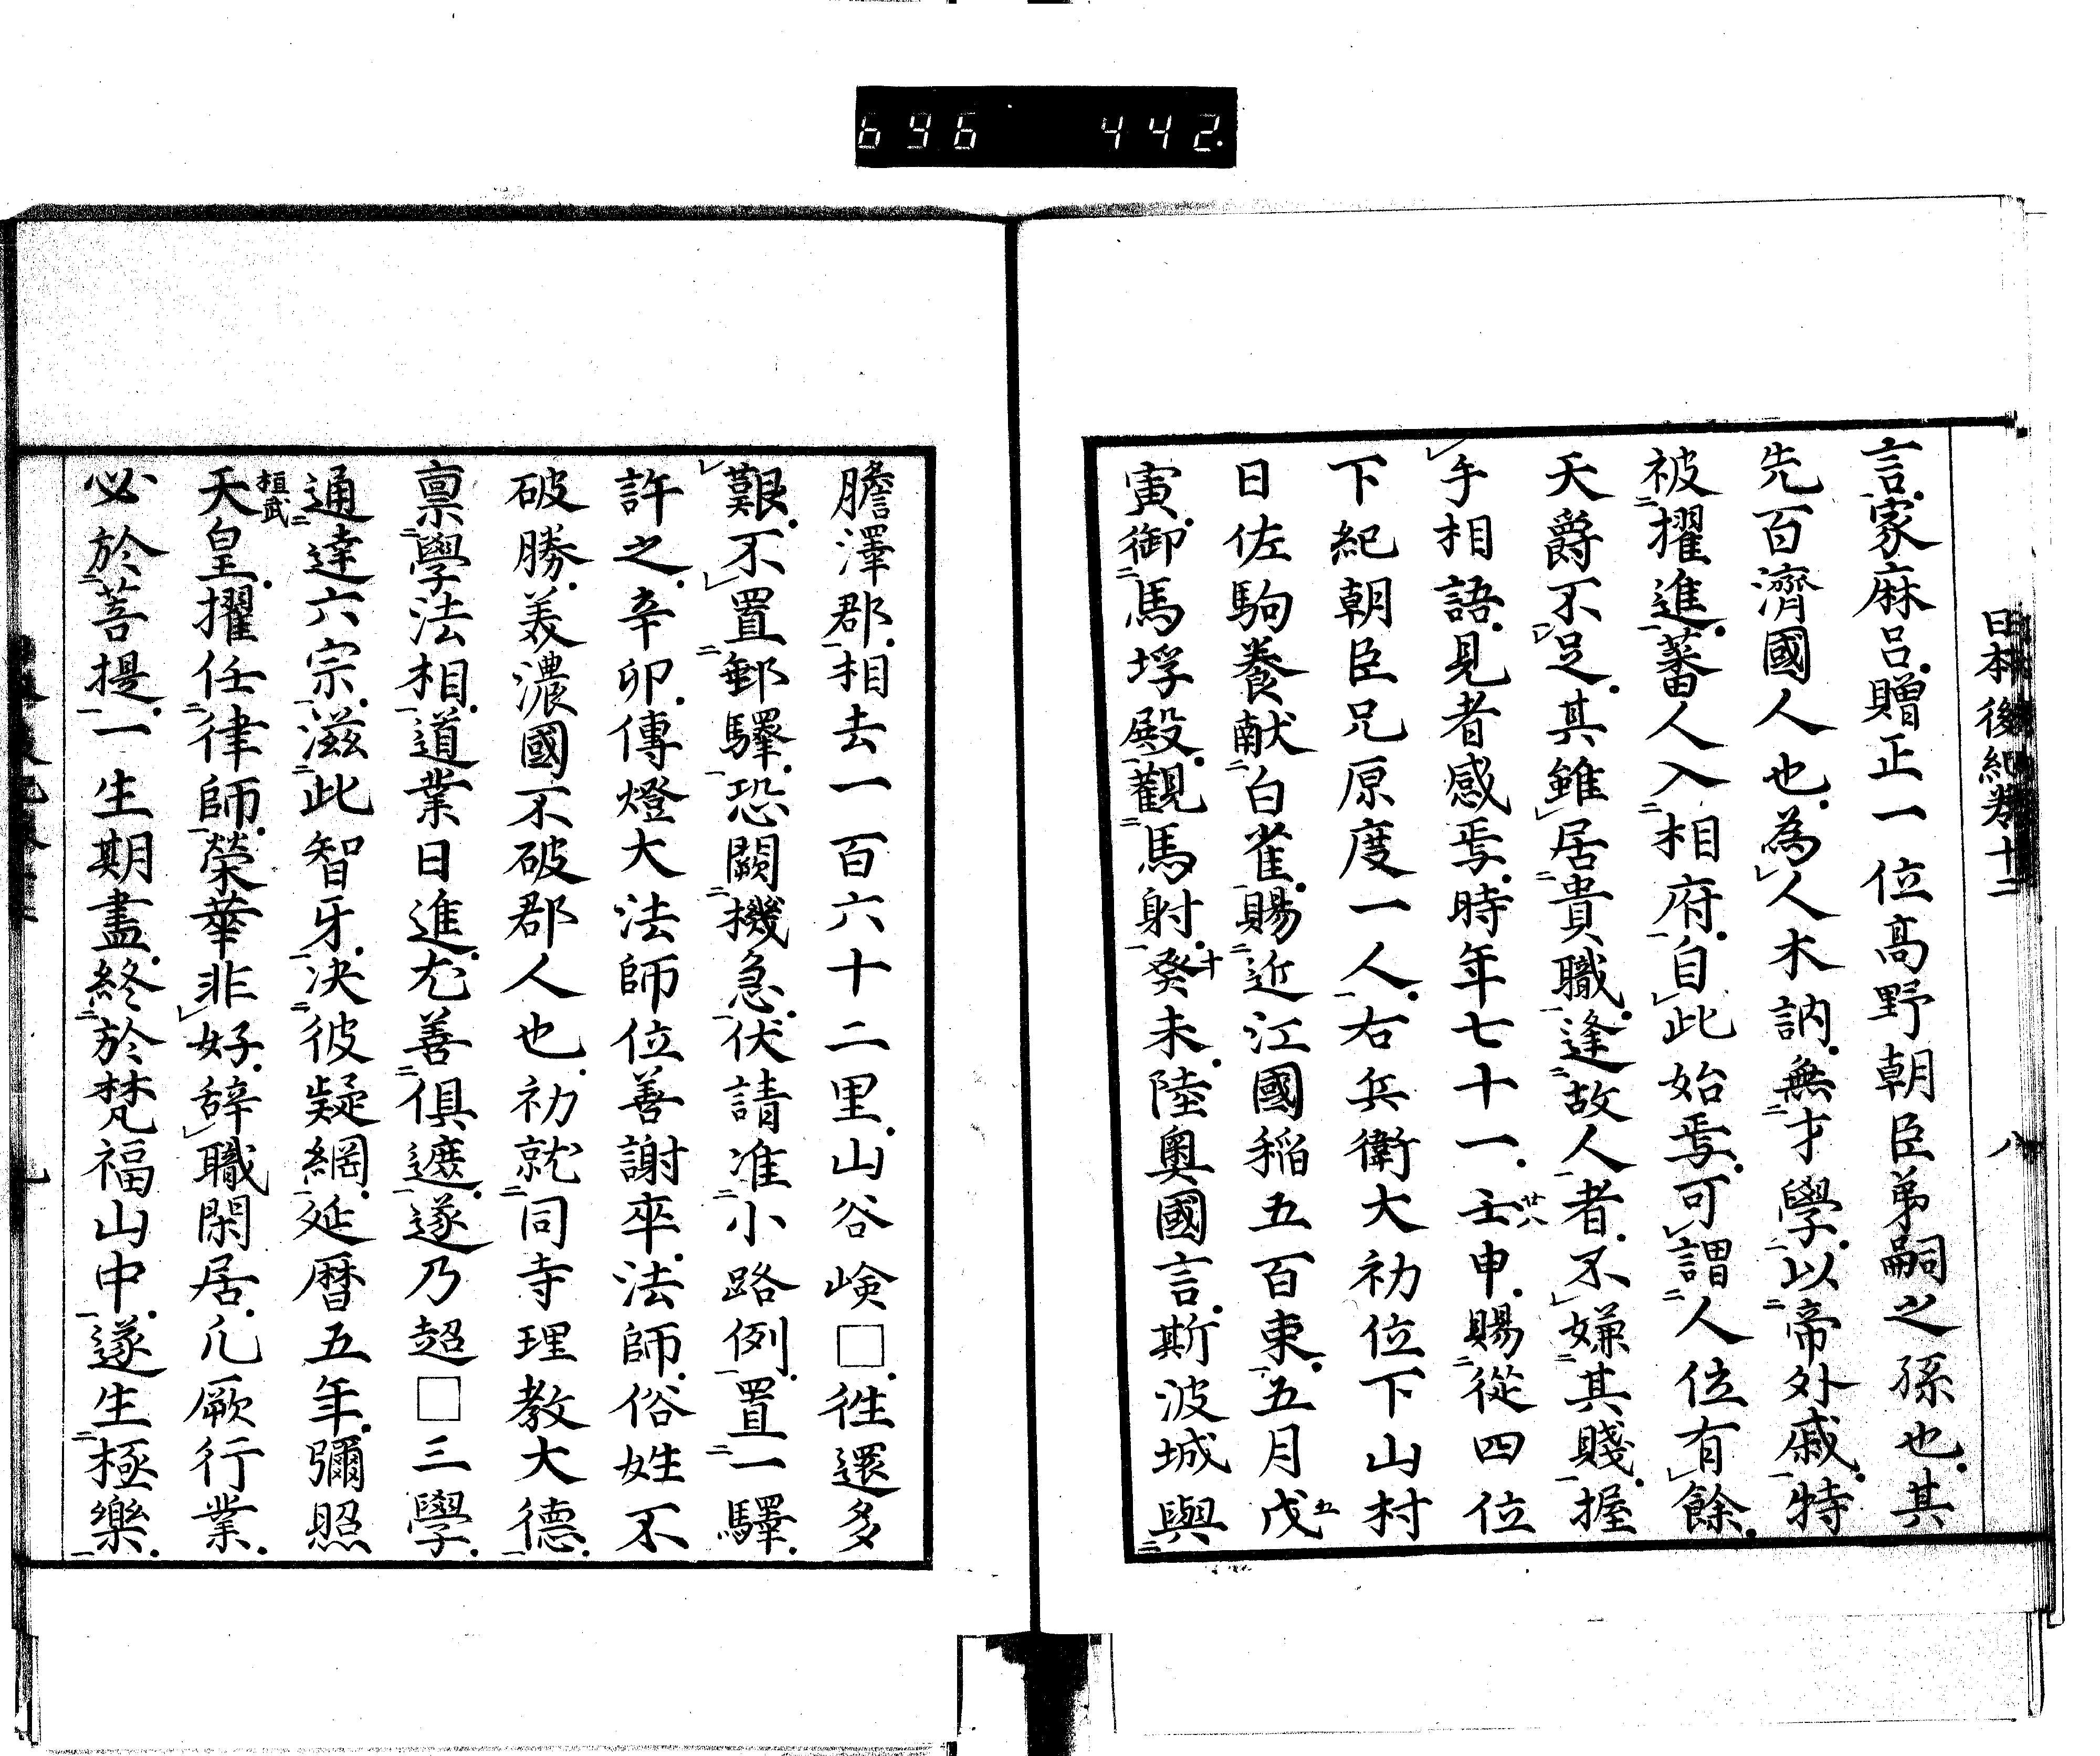 696 442.
日本後紀卷十二 八
言家麻呂贈正一位高野朝臣弟嗣之孫也其
先百濟國人也為人木訥無才學以帝外戚特
被擢進蕃人入相府自此始焉可謂人位有餘
天爵不足其雖居貴職逢故人者不嫌其賤握
手相語見者感焉時年七十一壬申賜從四位
廿八
下紀朝臣兄原度一人右兵衛大初位下山村
日佐駒養献白雀賜近江國稲五百束五月戊
五
寅御馬埒殿觀馬射癸未陸奧國言斯波城與
十
膽澤郡相去一百六十二里山谷嶮□徃還多
艱不置郵驛恐闕機急伏請准小路例置一驛
許之辛卯傳燈大法師位善謝卒法師俗姓不
破勝美濃國不破郡人也初就同寺理教大德
禀學法相道業日進尤善俱遮遂乃超□三學
通達六宗滋此智牙决彼疑網延暦五年彌照
桓武
天皇擢任律師榮華非好辞職閑居凡厥行業
必於菩提一生期盡終於梵福山中遂生極樂